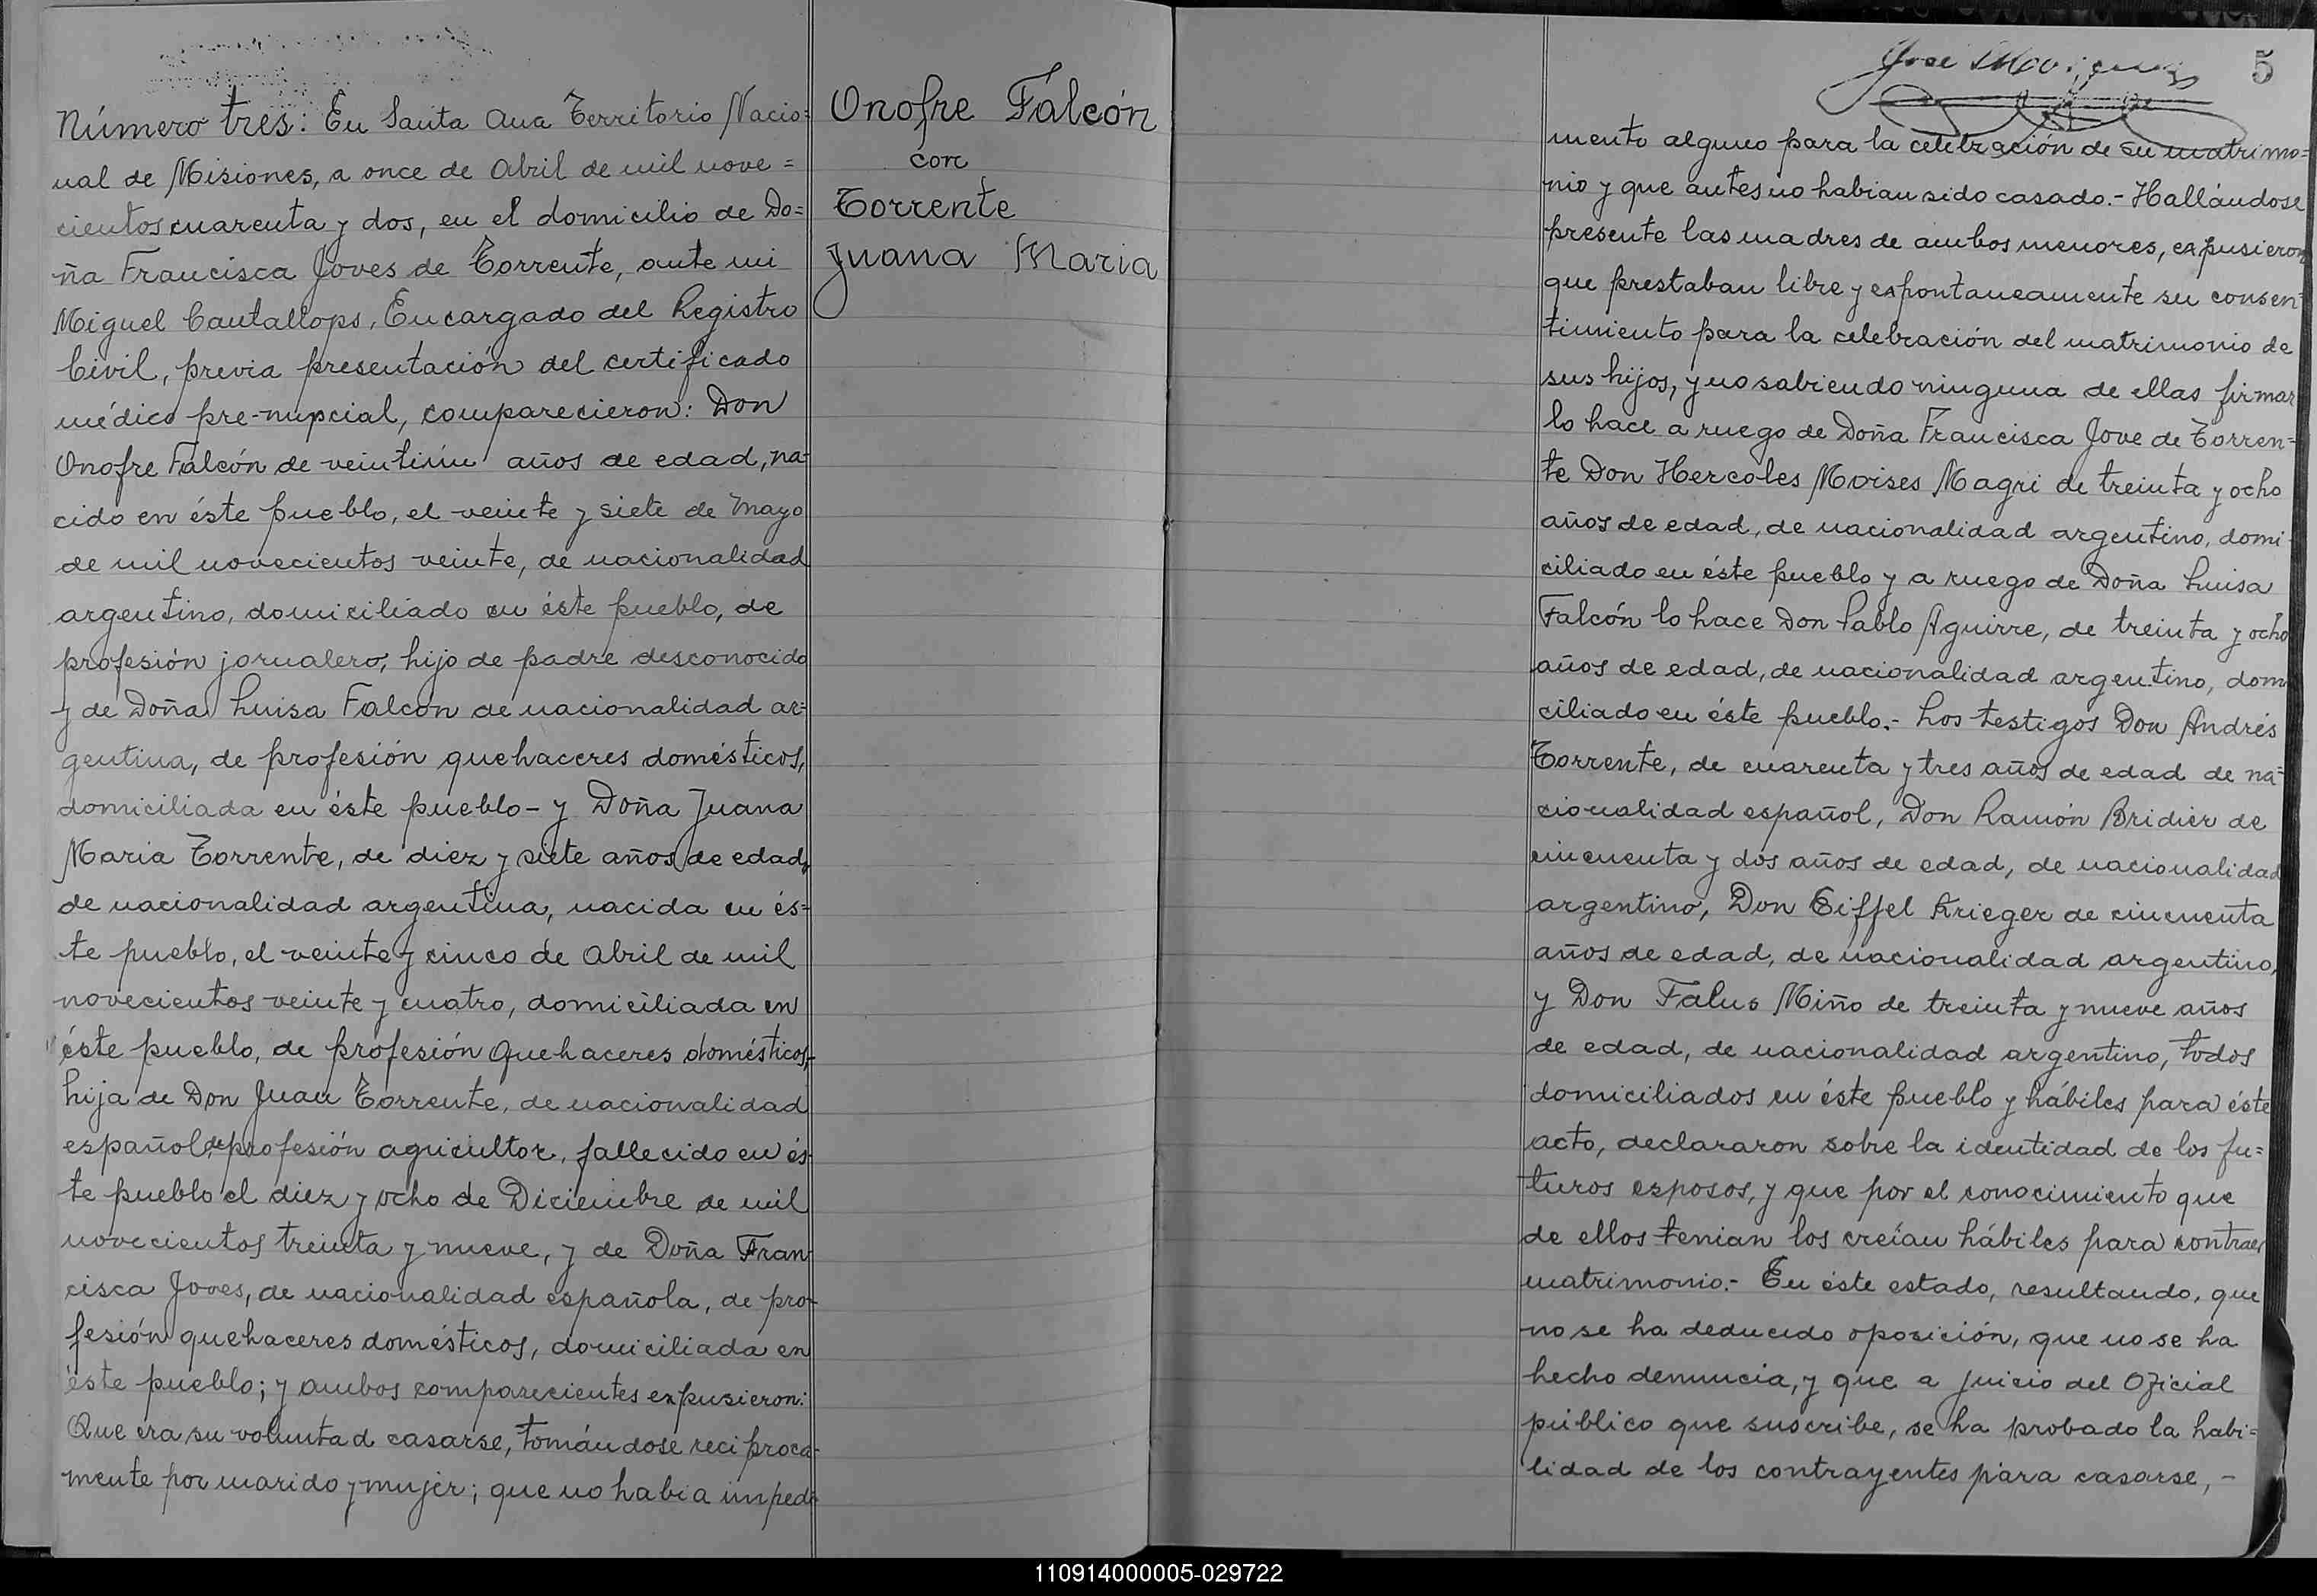 Número tres: En Santa Ana Territorio Nacio=
nal de Misiones, a once de Abril de mil nove=
cientos cuarenta y dos, en el domicilio de Do=
ña Francisca Joves de Torrente, ante mi
Miguel Cantallops, Encargado del Registro
Civil, previa presentación del certificado
médico pre-nupcial, comparecieron: Don
Onofre Falcón de veintiún años de edad, na-
cido en éste pueblo, el veinte y siete de Mayo
de mil novecientos veinte, de nacionalidad
argentino, domiciliado en éste pueblo, de
profesión jornalero, hijo de padre desconocido
y de Doña Luisa Falcón de nacionalidad ar=
gentina, de profesión quehaceres domésticos,
domiciliada en éste pueblo- y Doña Juana
Maria Torrente, de diez y siete años de edad,
de nacionalidad argentina, nacida en és=
te pueblo, el veinte y cinco de Abril de mil
novecientos veinte y cuatro, domiciliada en
éste pueblo, de profesión quehaceres domésticos,
hija de Don Juan Torrente, de nacionalidad
español, de profesión agricultor, fallecido en és-
te pueblo el diez y ocho de Diciembre de mil
novecientos treinta y nueve, y de Doña Fran-
cisca Joves, de nacionalidad española, de pro-
fesión quehaceres domésticos, domiciliada en
éste pueblo; y ambos comparecientes expusieron:
Que era su voluntad casarse, tomándose reciproca-
mente por marido y mujer; que no habia impedi-
Onofre Falcón
con
Torrente
Juana Maria
5
mento alguno para la celebración de su matrimo=
nio y que antes no habian sido casado.- Hallándose
presente las madres de ambos menores, expusieron
que prestaban libre y expontaneamente su consen-
timiento para la celebración del matrimonio de
sus hijos, y no sabiendo ninguna de ellas firmar
lo hace a ruego de Doña Francisca Jove de Torren=
te Don Hercoles Moises Magri de treinta y ocho
años de edad, de nacionalidad argentino, domi-
ciliado en éste pueblo y a ruego de Doña Luisa
Falcón lo hace Don Pablo Aguirre, de treinta y ocho
años de edad, de nacionalidad argentino, domi
ciliado en éste pueblo.- Los testigos Don Andrés
Torrente, de cuarenta y tres años de edad de na=
cionalidad español, Don Ramón Bridier de
cincuenta y dos años de edad, de nacionalidad
argentino, Don Eiffel Krieger de cincuenta
años de edad, de nacionalidad argentino,
y Don Falus Miño de treinta y nueve años
de edad, de nacionalidad argentino, todos
domiciliados en éste pueblo y hábiles para éste
acto, declararon sobre la identidad de los fu=
turos esposos, y que por el conocimiento que
de ellos tenian los creían hábiles para contraer
matrimonio.- En éste estado, resultando, que
no se ha deducido oposición, que no se ha
hecho denuncia, y que a juicio del Oficial
público que suscribe, se ha probado la habi=
lidad de los contrayentes para casarse, -
110914000005-029722